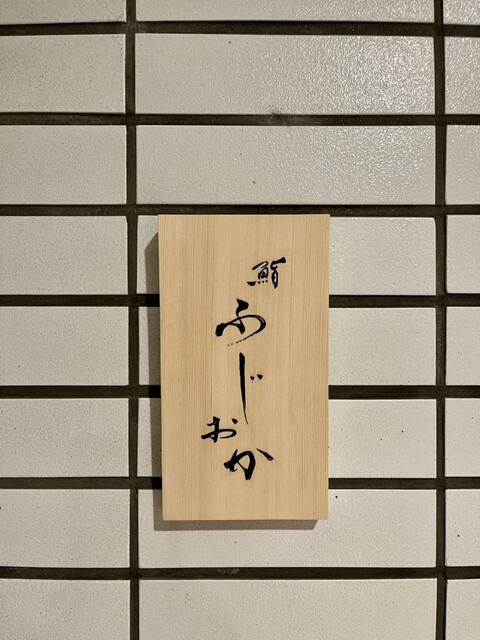 鮨
ふじおか